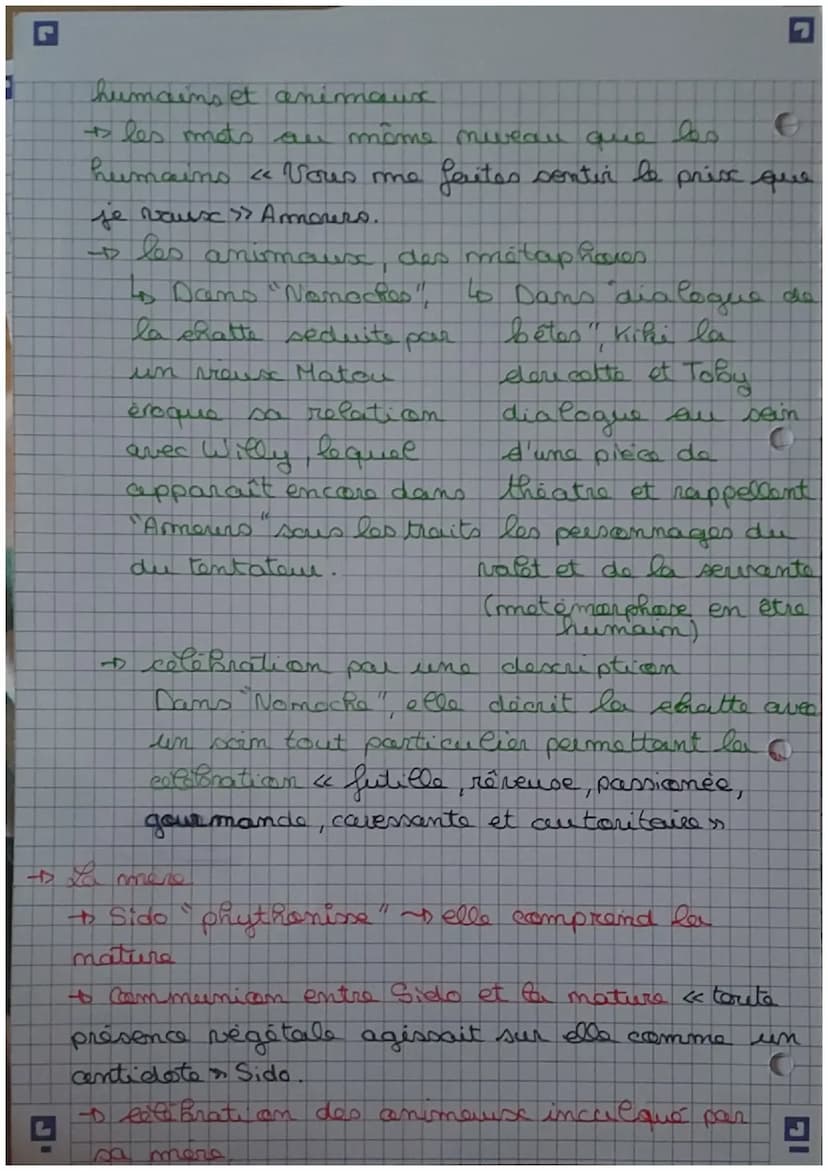 humains et animaux
→ les mots au même niveau que les
humains « Vous me faites sentir le prix que
je vaux » Amours.
→ les animaux, des métaphores
↳ Dans "Nonoches",
la chatte seduite par
un vieux Matou
évoque sa relation
avec Willy, lequel
apparaît encore dans
"Amours" sous les traits
du tentateur.
↳ Dans "dialogue de
bêtes", Kiki la
doucette et Toby
dialogue au sein
d'une pièce de
théatre et rappellant
les personnages du
valet et de la servante
(metémorphose en etre
humain)
→ célébration par une description
Dans "Nonoche", elle décrit la chatte avec
un soin tout particulier permettant la
célébration « futille, rêveuse, passionée,
gourmande, caressante et autoritaire »
→ La mère
→ Sido "phythonisse" → elle comprend la
nature
→ Communion entre Sido et la nature « toute
présence végétale agissait sur elle comme un
antidote » Sido.
→ célébration des animaux inculqué par
sa mère